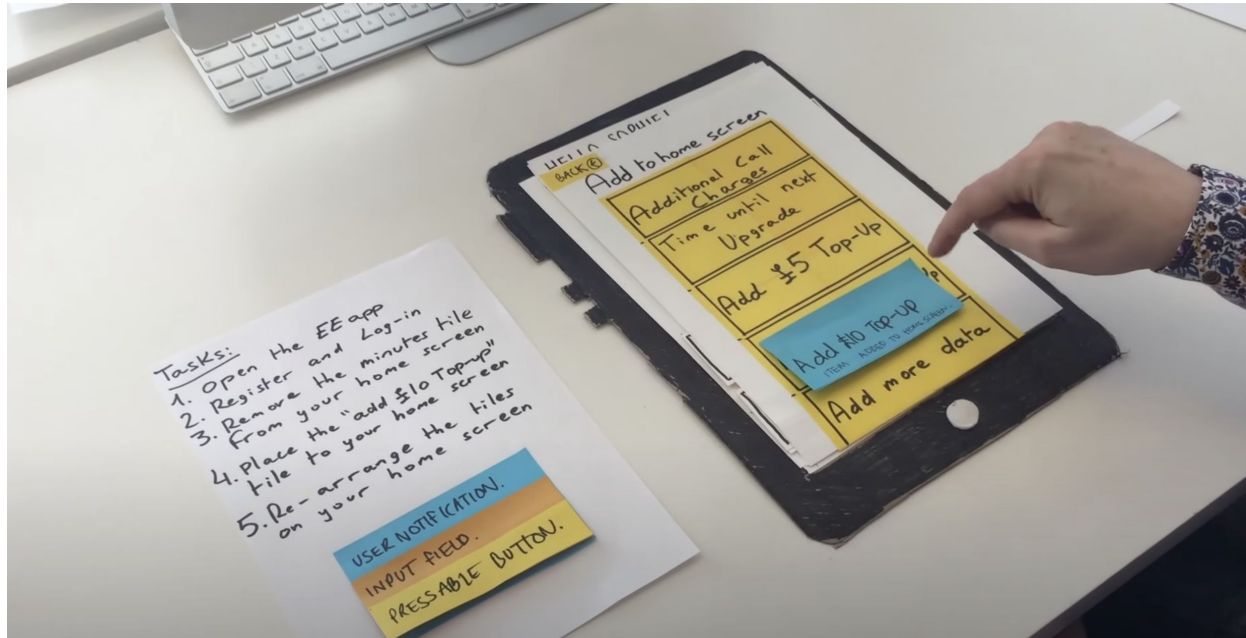 Tasks:
1. Open the EE app
2. Register and Log-in
3. Remove the minutes tile
from your home screen
4. Place the "add £10 Top-up"
tile to your home screen
5. Re-arrange the tiles
on your home screen
USER NOTIFICATION.
INPUT FIELD.
PRESSABLE BUTTON.
BACK
Add to home screen
Additional Call
Charges
Time until next
Upgrade
Add £5 Top-Up
Add £10 TOP-UP
ITEM ADDED TO HOME SCREEN.
Add more data